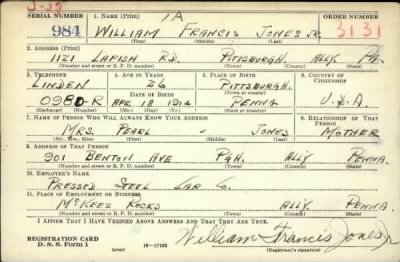 S-39
1A
SERIAL NUMBER 1. NAME (Print) ORDER NUMBER
984 WILLIAM FRANCIS JONES JR. 3131
(First) (Middle) (Last)
2. ADDRESS (Print)
1121 LAFISH RD. PITTSBURGH ALLY. PA.
(Number and street or R. F. D. number) (Town) (County) (State)
3. TELEPHONE 4. AGE IN YEARS 5. PLACE OF BIRTH 6. COUNTRY OF CITIZENSHIP
LINDEN 26 PITTSBURGH.
DATE OF BIRTH (Town or county)
0980-R APR. 18 1914 PENNA U.S.A.
(Exchange) (Number) (Mo.) (Day) (Yr.) (State or country)
7. NAME OF PERSON WHO WILL ALWAYS KNOW YOUR ADDRESS 8. RELATIONSHIP OF THAT PERSON
MRS. PEARL - JONES MOTHER
(Mr., Mrs., Miss) (First) (Middle) (Last)
9. ADDRESS OF THAT PERSON
901 BENTON AVE PGH. ALLY PENNA.
(Number and street or R. F. D. number) (Town) (County) (State)
10. EMPLOYER'S NAME
PRESSED STEEL CAR CO.
11. PLACE OF EMPLOYMENT OR BUSINESS
MCKEES ROCKS ALLY. PENNA.
(Number and street or R. F. D. number) (Town) (County) (State)
I AFFIRM THAT I HAVE VERIFIED ABOVE ANSWERS AND THAT THEY ARE TRUE.
REGISTRATION CARD
D. S. S. Form 1 (over) 16—17105 William Francis Jones Jr
(Registrant's signature)